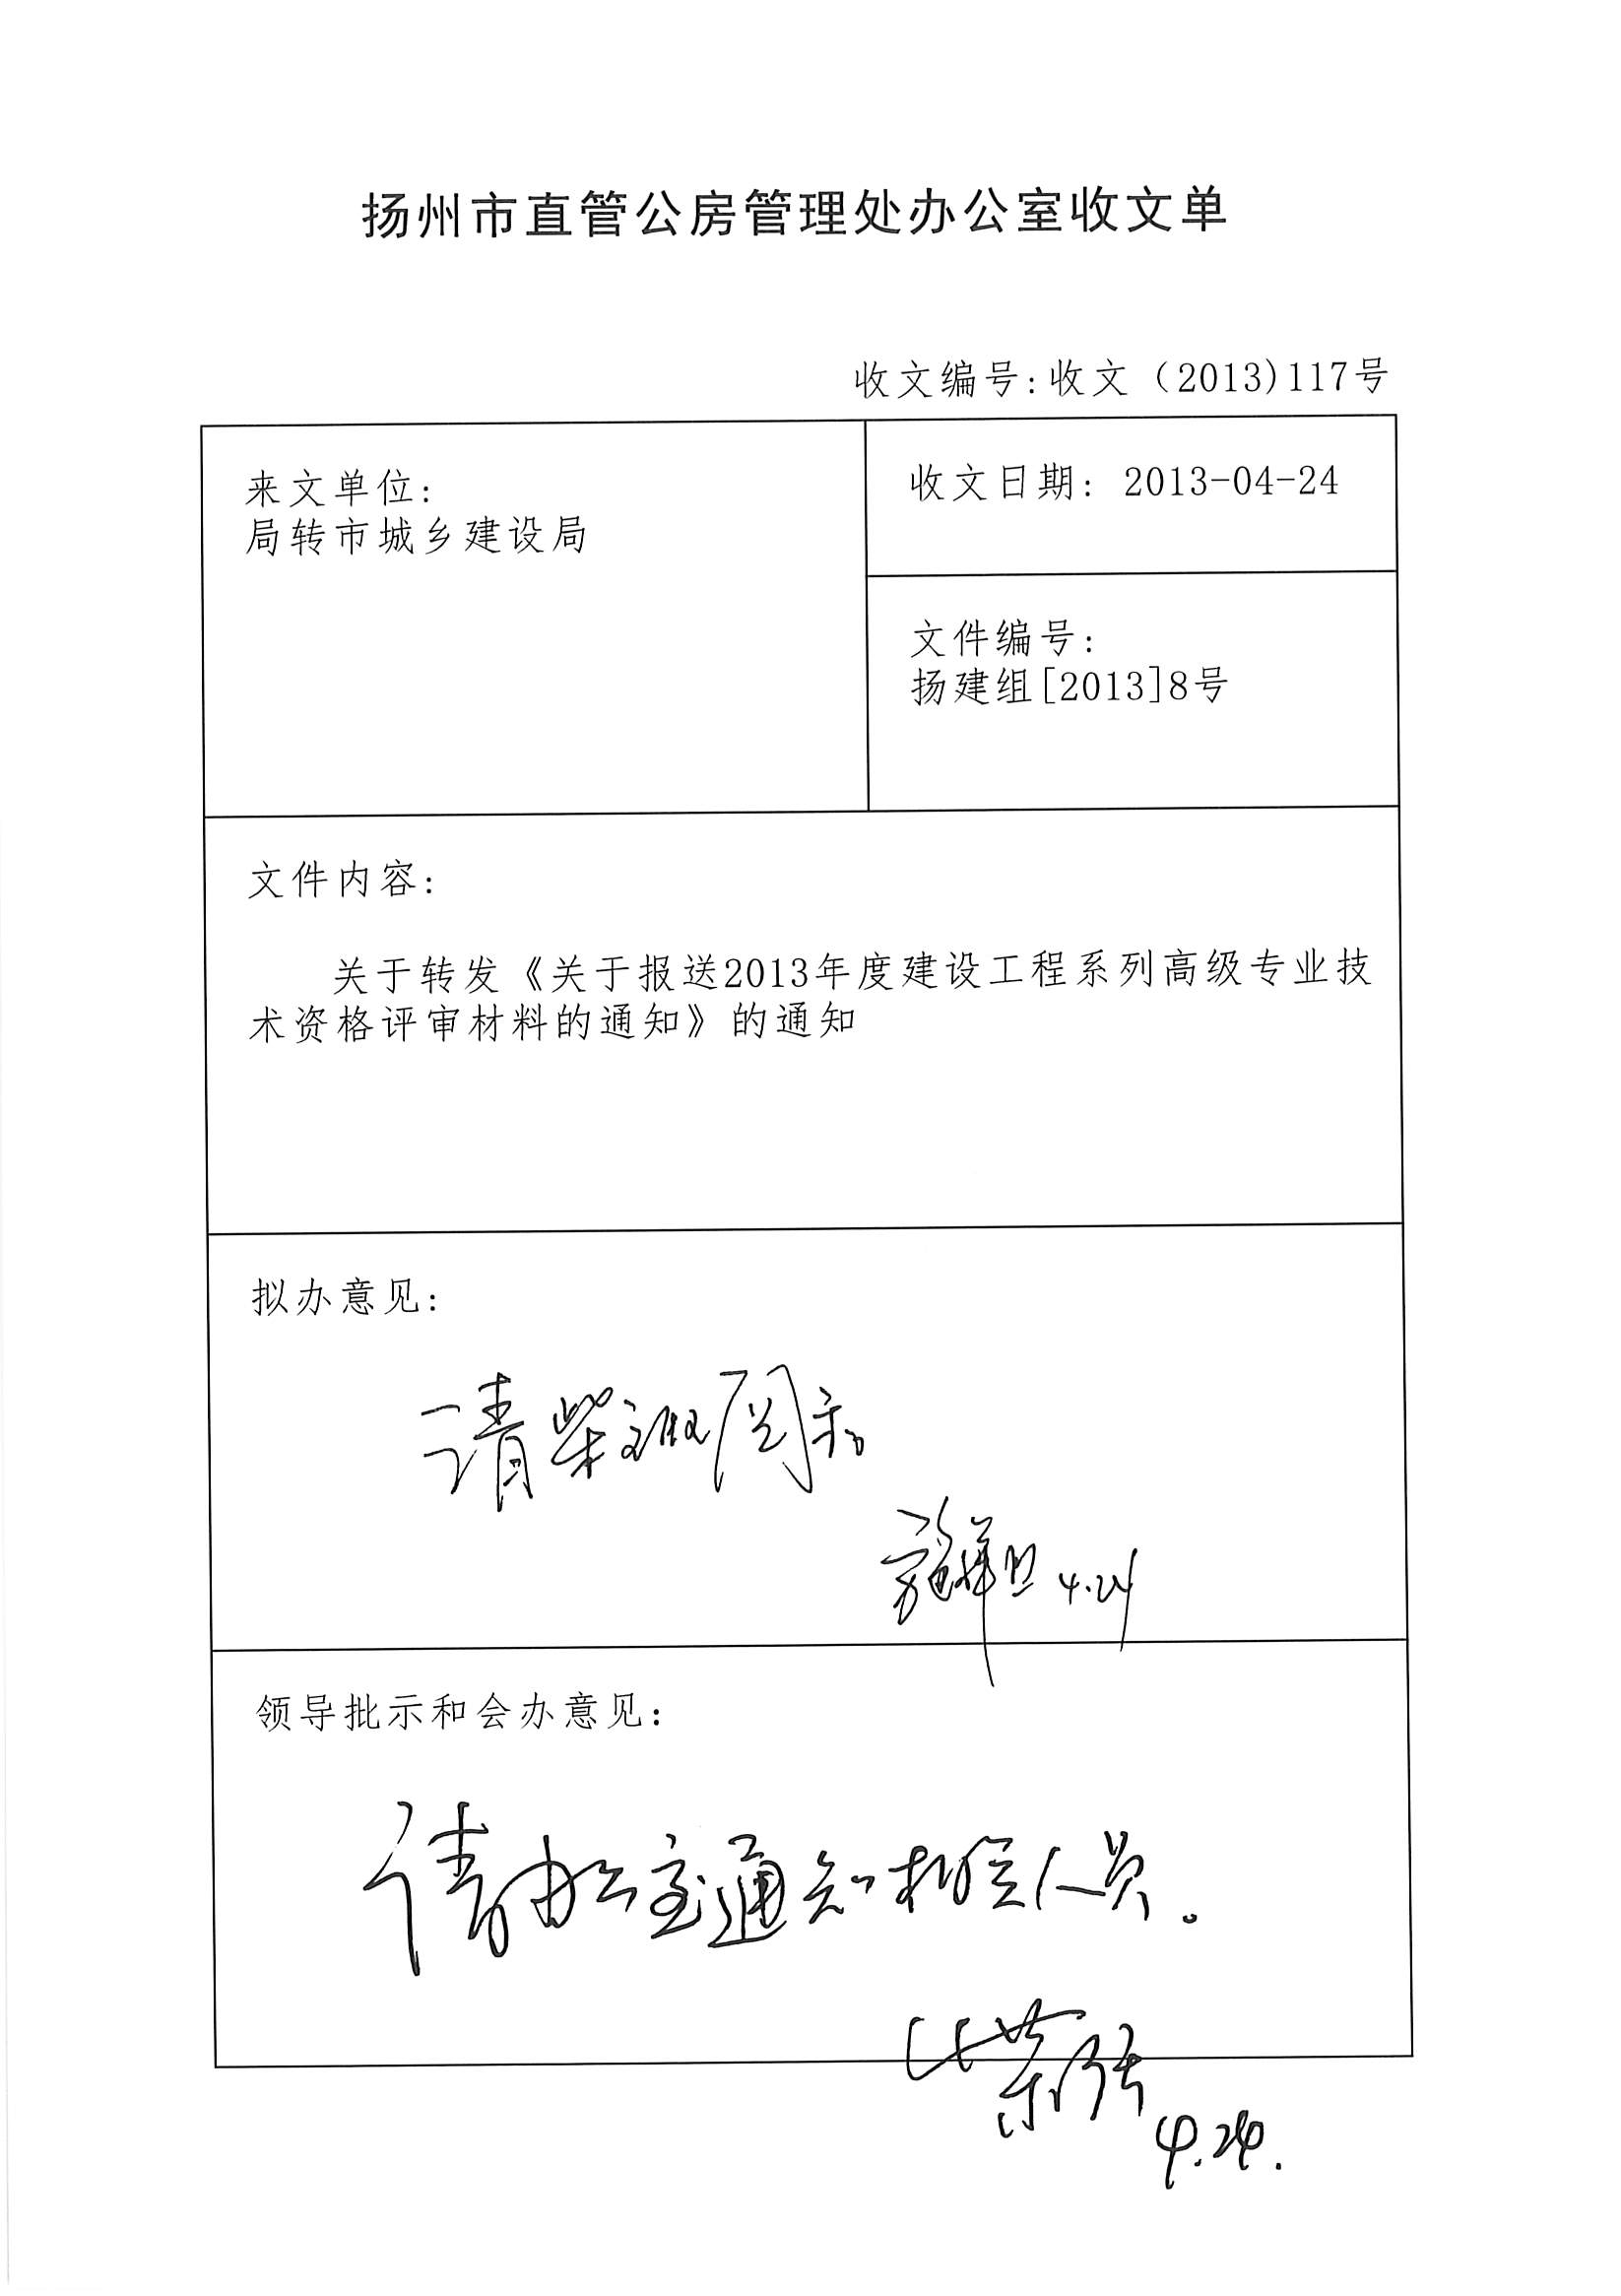 扬州市直管公房管理处办公室收文单
收文编号:收文（2013)117号
来文单位:
局转市城乡建设局
收文日期: 2013-04-24
文件编号:
扬建组[2013]8号
文件内容:
关于转发《关于报送2013年度建设工程系列高级专业技
术资格评审材料的通知》的通知
拟办意见:
请柴 阅示。
施 4.24
领导批示和会办意见:
请办公室通知相关人员。
4.24.